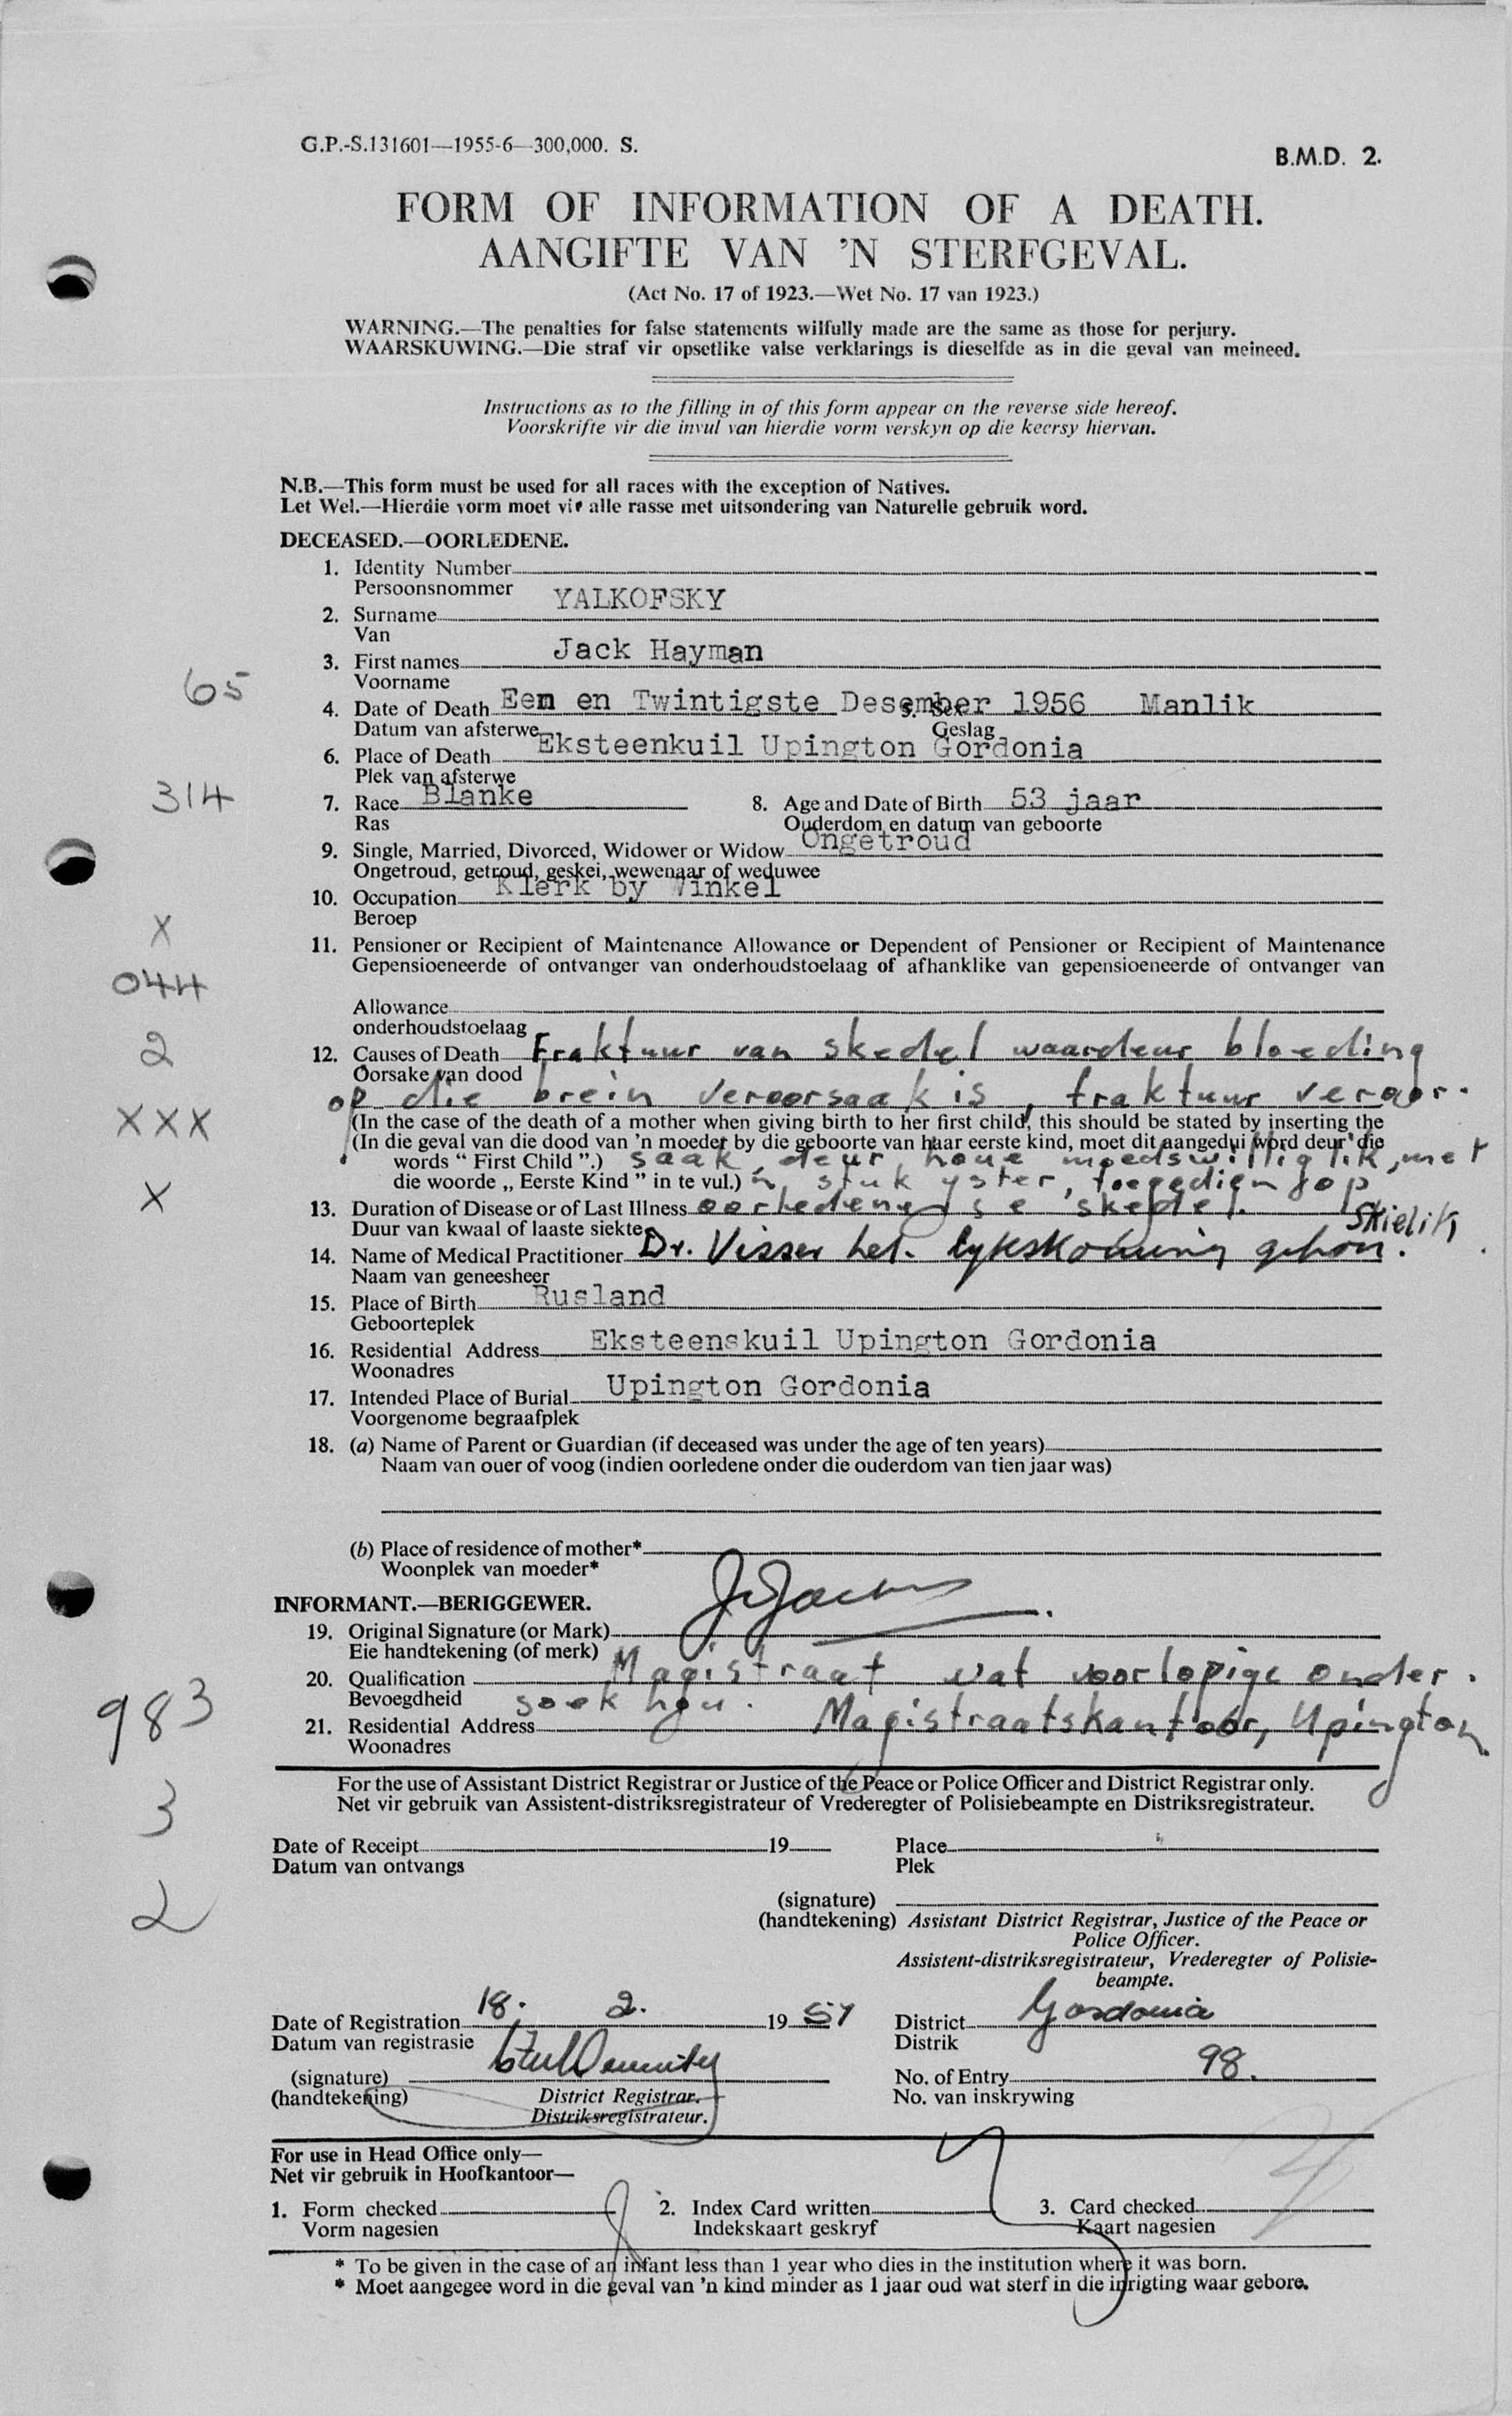 G.P.-S.131601—1955-6—300,000. S.
B.M.D. 2.
FORM OF INFORMATION OF A DEATH.
AANGIFTE VAN 'N STERFGEVAL.
(Act No. 17 of 1923.—Wet No. 17 van 1923.)
WARNING.—The penalties for false statements wilfully made are the same as those for perjury.
WAARSKUWING.—Die straf vir opsetlike valse verklarings is dieselfde as in die geval van meineed.
Instructions as to the filling in of this form appear on the reverse side hereof.
Voorskrifte vir die invul van hierdie vorm verskyn op die keersy hiervan.
N.B.—This form must be used for all races with the exception of Natives.
Let Wel.—Hierdie vorm moet vir alle rasse met uitsondering van Naturelle gebruik word.
DECEASED.—OORLEDENE.
1. Identity Number
Persoonsnommer
2. Surname YALKOFSKY
Van
3. First names Jack Hayman
Voorname
65
4. Date of Death Een en Twintigste Desember 1956 5. Sex Manlik
Datum van afsterwe Geslag
6. Place of Death Eksteenkuil Upington Gordonia
Plek van afsterwe
314
7. Race Blanke 8. Age and Date of Birth 53 jaar
Ras Ouderdom en datum van geboorte
9. Single, Married, Divorced, Widower or Widow Ongetroud
Ongetroud, getroud, geskei, wewenaar of weduwee
10. Occupation Klerk by Winkel
Beroep
X
11. Pensioner or Recipient of Maintenance Allowance or Dependent of Pensioner or Recipient of Maintenance
Gepensioeneerde of ontvanger van onderhoudstoelaag of afhanklike van gepensioeneerde of ontvanger van
044
Allowance
onderhoudstoelaag
2
12. Causes of Death Fraktuur van skedel waardeur bloeding
Oorsake van dood
op die brein veroorsaak is, fraktuur veroor-
XXX
(In the case of the death of a mother when giving birth to her first child, this should be stated by inserting the
(In die geval van die dood van 'n moeder by die geboorte van haar eerste kind, moet dit aangedui word deur die
words " First Child ".) saak, deur houe moedswilliglik, met
die woorde „ Eerste Kind " in te vul.) 'n stuk yster, toegedien op
X
13. Duration of Disease or of Last Illness oorledene se skedel. Skielik
Duur van kwaal of laaste siekte
14. Name of Medical Practitioner Dr. Visser het lykskouing gehou.
Naam van geneesheer
15. Place of Birth Rusland
Geboorteplek
16. Residential Address Eksteenskuil Upington Gordonia
Woonadres
17. Intended Place of Burial Upington Gordonia
Voorgenome begraafplek
18. (a) Name of Parent or Guardian (if deceased was under the age of ten years)
Naam van ouer of voog (indien oorledene onder die ouderdom van tien jaar was)
(b) Place of residence of mother*
Woonplek van moeder*
INFORMANT.—BERIGGEWER.
19. Original Signature (or Mark)
Eie handtekening (of merk)
20. Qualification Magistraat wat voorlopige onder-
Bevoegdheid soek hou.
983
21. Residential Address Magistraatskantoor, Upington
Woonadres
For the use of Assistant District Registrar or Justice of the Peace or Police Officer and District Registrar only.
Net vir gebruik van Assistent-distriksregistrateur of Vrederegter of Polisiebeampte en Distriksregistrateur.
3
Date of Receipt 19 Place
Datum van ontvangs Plek
2
(signature)
(handtekening) Assistant District Registrar, Justice of the Peace or
Police Officer.
Assistent-distriksregistrateur, Vrederegter of Polisie-
beampte.
Date of Registration 18. 2. 1957 District Gordonia
Datum van registrasie Distrik
(signature) No. of Entry 98.
(handtekening) District Registrar. No. van inskrywing
Distriksregistrateur.
For use in Head Office only—
Net vir gebruik in Hoofkantoor—
1. Form checked 2. Index Card written 3. Card checked
Vorm nagesien Indekskaart geskryf Kaart nagesien
* To be given in the case of an infant less than 1 year who dies in the institution where it was born.
* Moet aangegee word in die geval van 'n kind minder as 1 jaar oud wat sterf in die inrigting waar gebore.